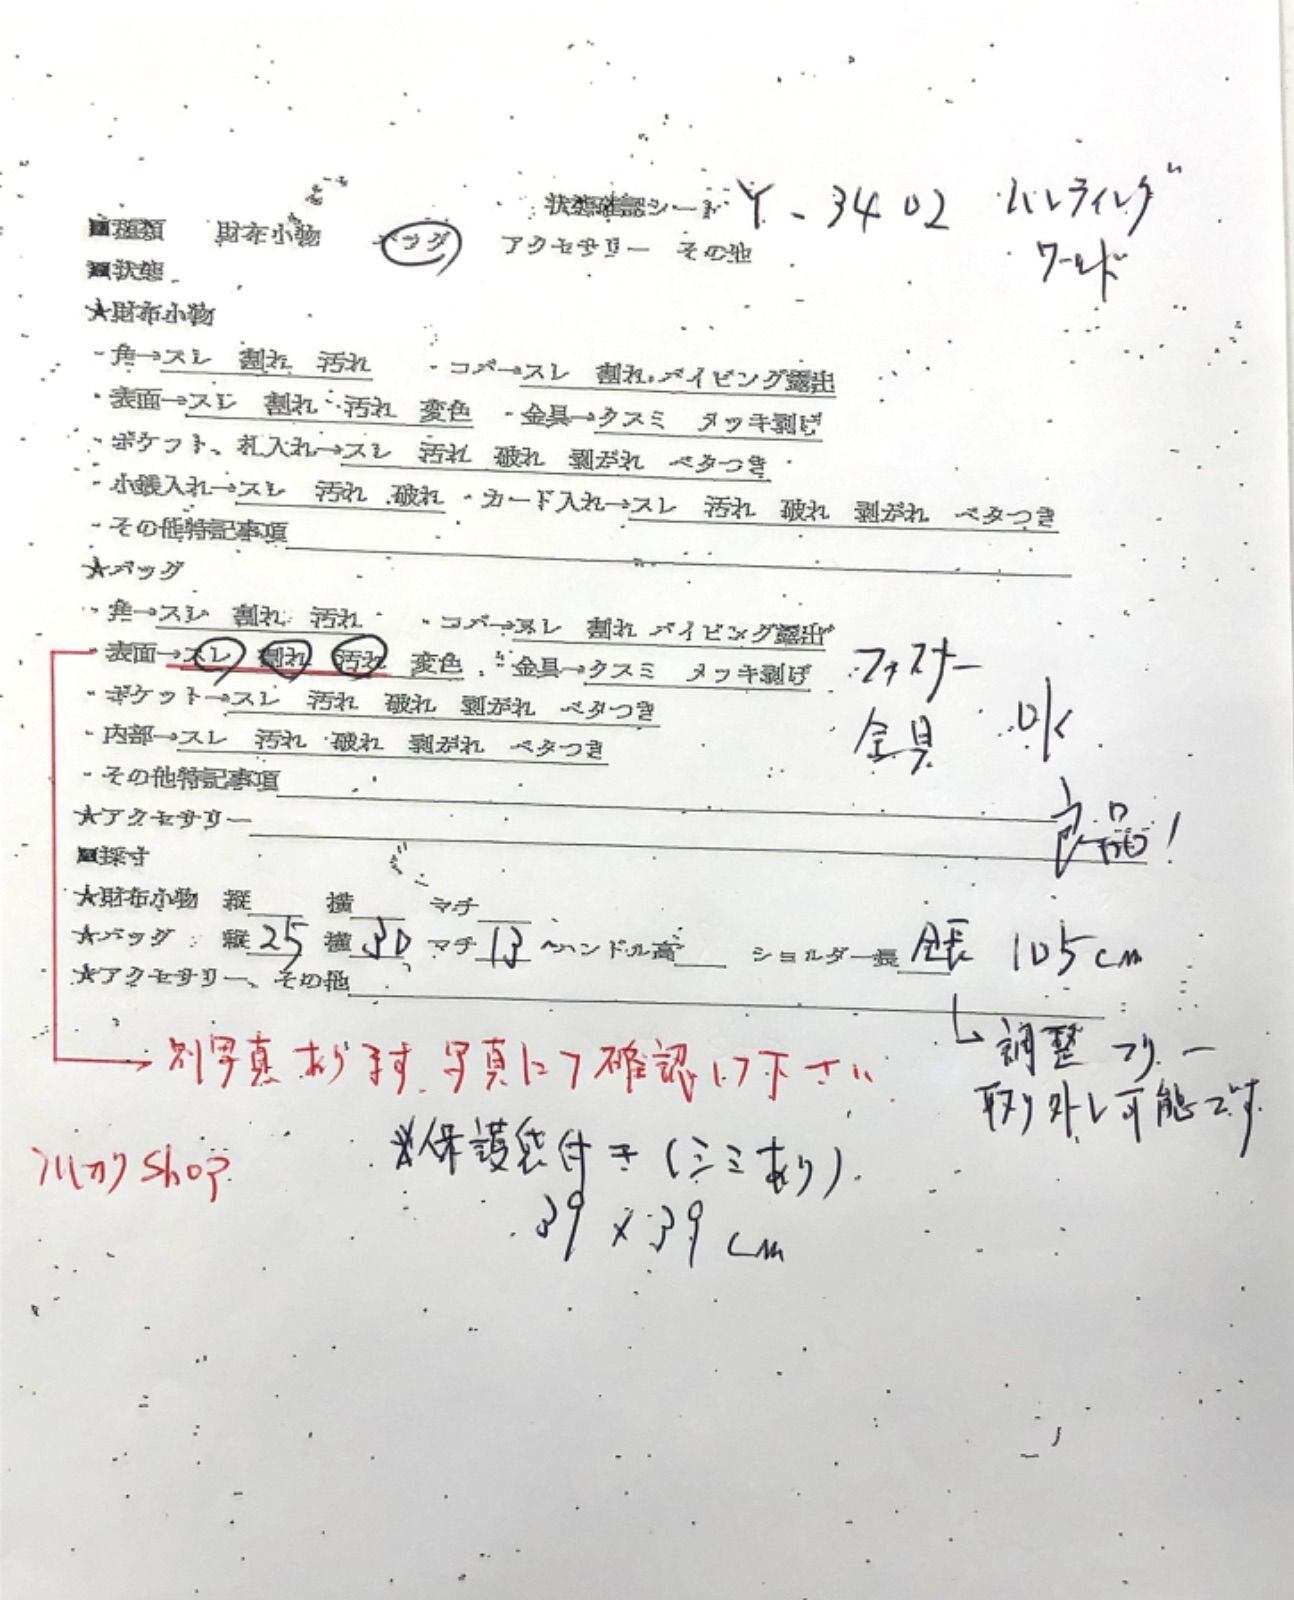 状態確認シート Y-3402 ハンティング
ワールド
■種類 財布小物 バッグ アクセサリー その他
■状態
★財布小物
・角→スレ 割れ 汚れ ・コバ→スレ 割れ パイピング露出
・表面→スレ 割れ 汚れ 変色 ・金具→クスミ メッキ剥げ
・ポケット、札入れ→スレ 汚れ 破れ 剥がれ ベタつき
・小銭入れ→スレ 汚れ 破れ ・カード入れ→スレ 汚れ 破れ 剥がれ ベタつき
・その他特記事項
★バッグ
・角→スレ 割れ 汚れ ・コバ→スレ 割れ パイピング露出
・表面→スレ 割れ 汚れ 変色 ・金具→クスミ メッキ剥げ ファスナー
・ポケット→スレ 汚れ 破れ 剥がれ ベタつき 金具 OK
・内部→スレ 汚れ 破れ 剥がれ ベタつき
・その他特記事項
良品!
★アクセサリー
■採寸
★財布小物 縦 横 マチ
★バッグ 縦25 横30 マチ13 ハンドル高 ショルダー長 全長 105cm
★アクセサリー、その他
→調整フリー
取り外し可能です
→別写真あります。写真にて確認して下さい
※保護袋付き(シミあり)
39×39cm
shop